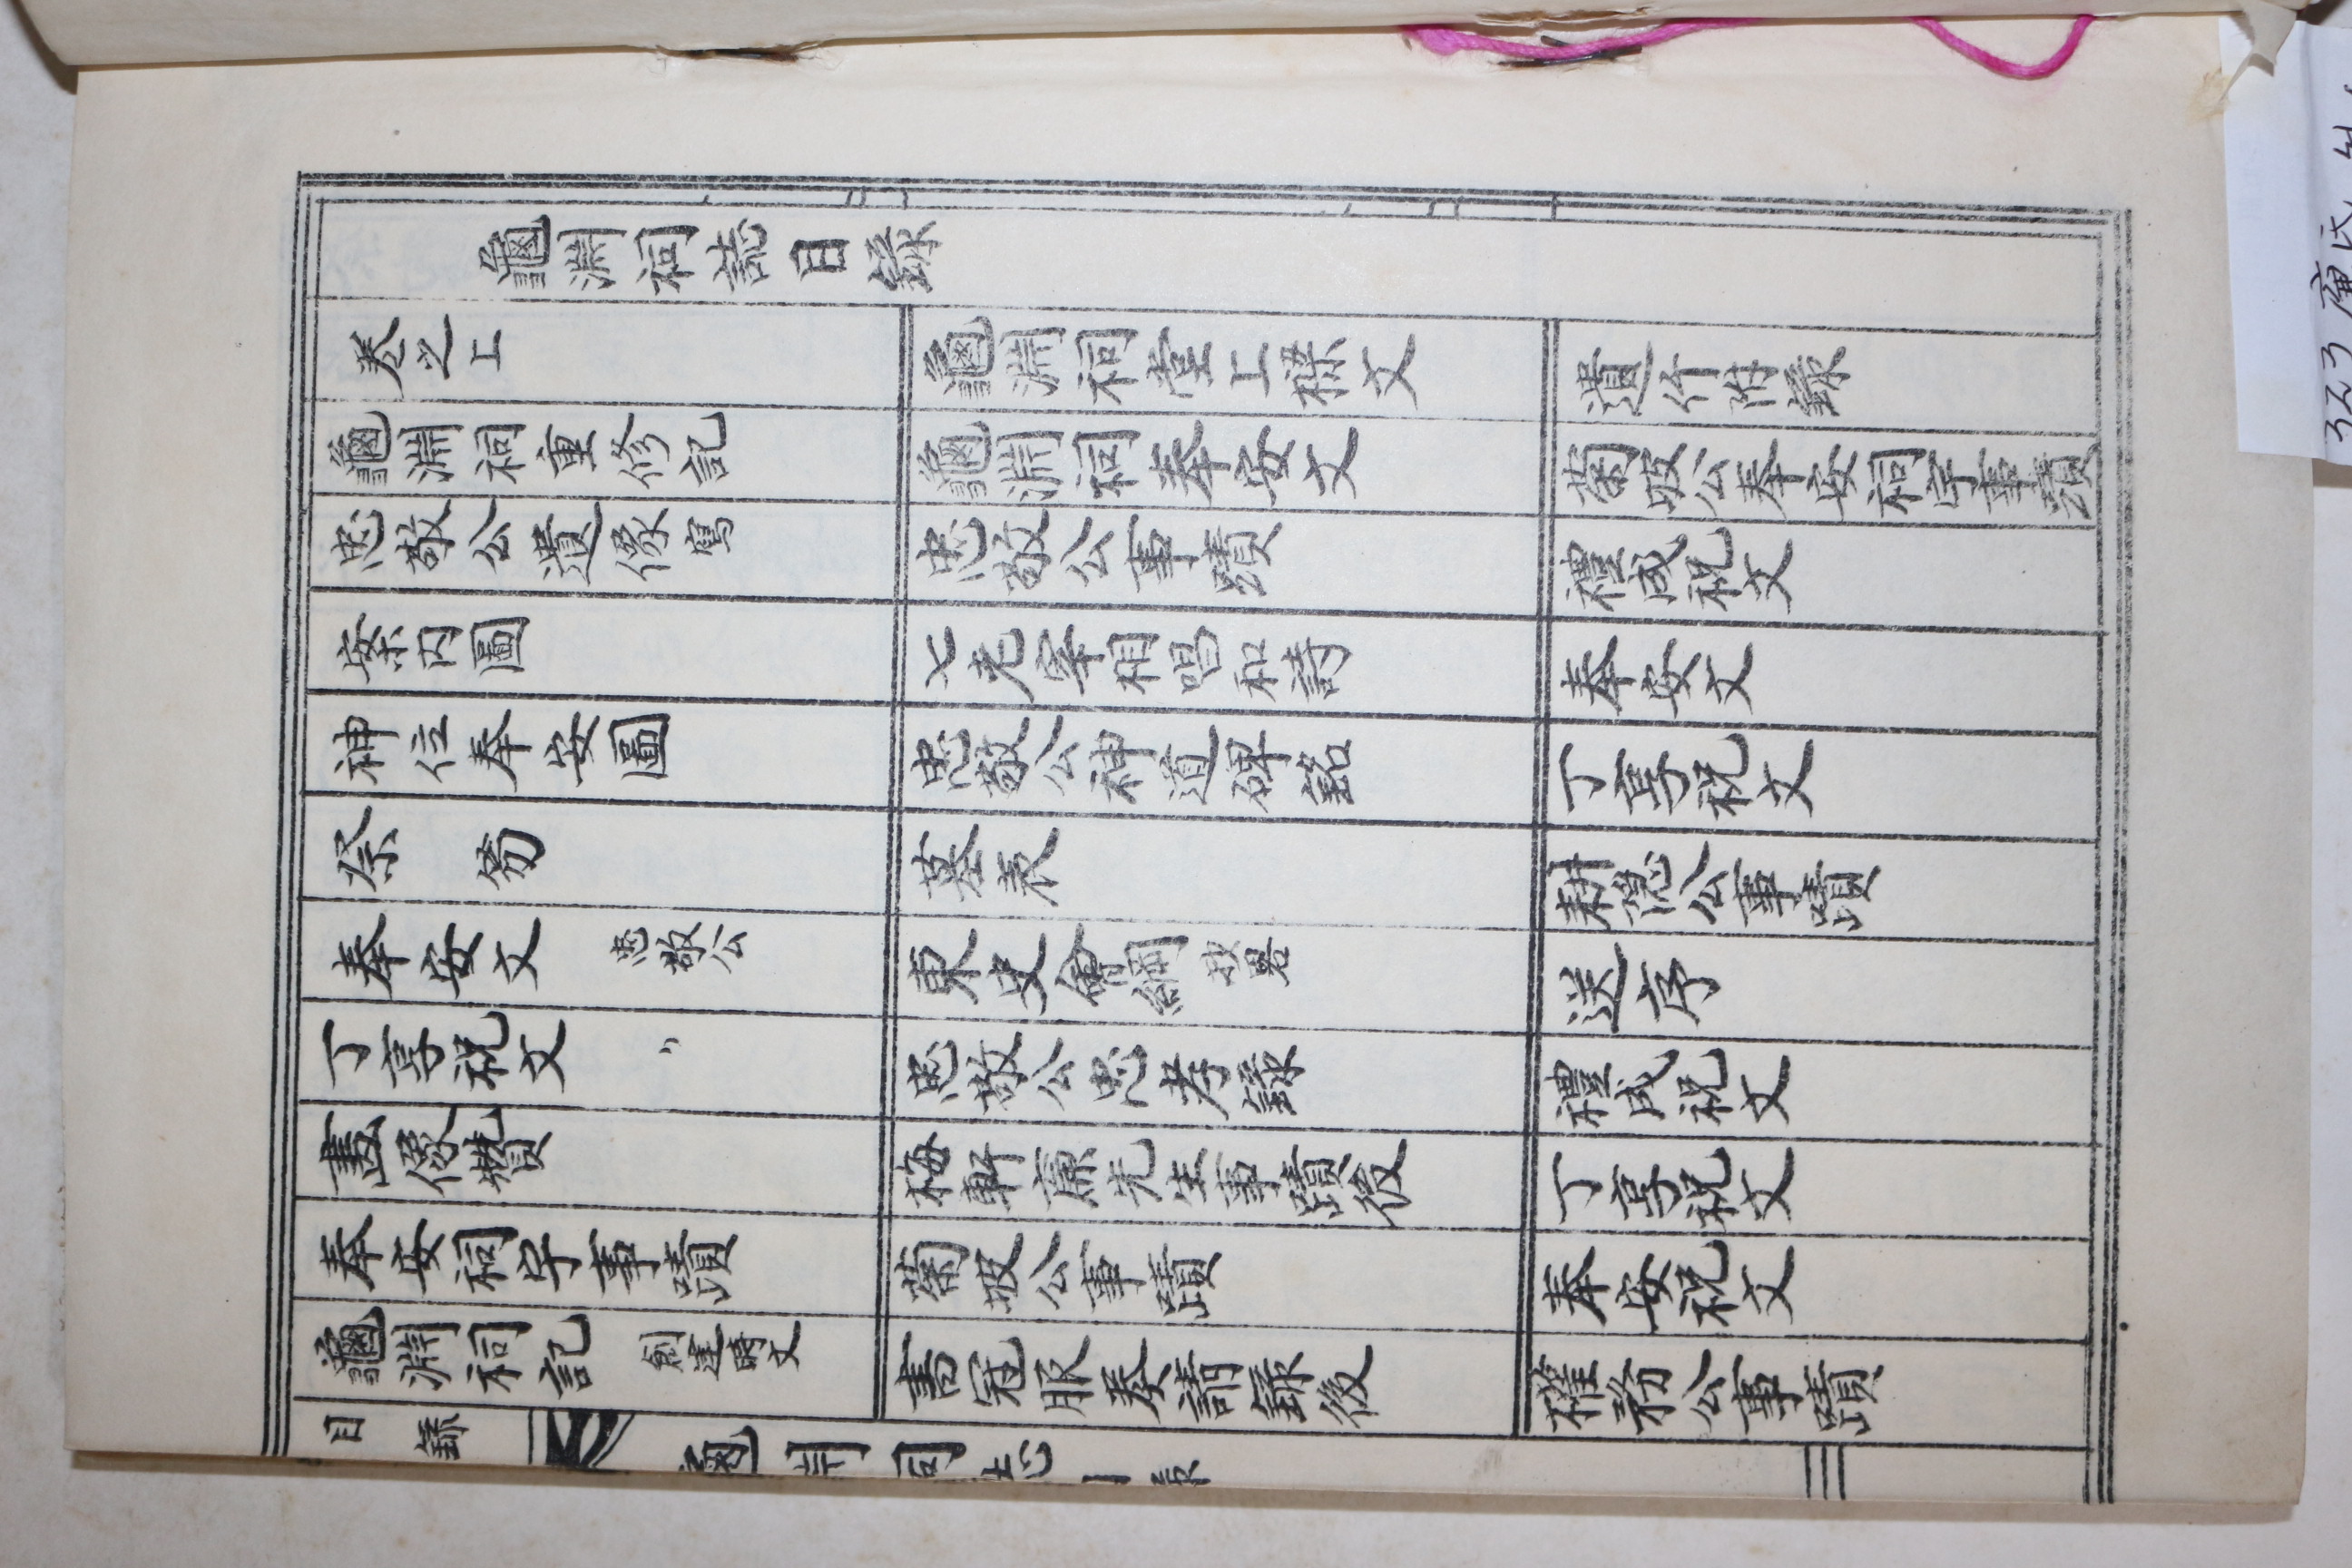 龜淵祠誌目錄
卷之上
龜淵祠重修記
忠敬公遺像寫
案内圖
神位奉安圖
祭笏
奉安文 忠敬公
丁享祝文 〃
畵像贊
奉安祠宇事蹟
龜淵祠記 創建時文
龜淵祠堂上樑文
龜淵祠奉安文
忠敬公事蹟
七老宰相唱和詩
忠敬公神道碑銘
墓表
東史會綱 抄畧
忠敬公忠孝錄
梅軒廉先生事蹟後
菊坡公事蹟
書冠服奏請錄後
遺什附錄
菊坡公奉安祠宇事蹟
禮成祝文
奉安文
丁享祝文
耕隐公事蹟
送序
禮成祝文
丁享祝文
奉安祝文
權務公事蹟
目錄
龜淵祠誌目錄
323 廉氏